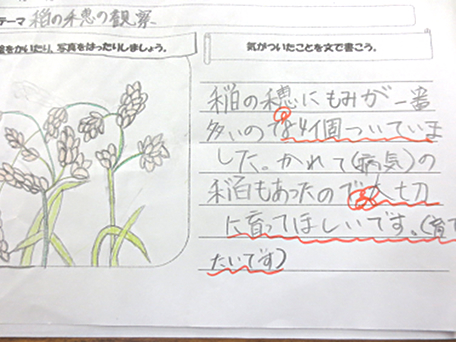 テーマ 稲の禾恵の観察
絵をかいたり、写真をはったりしましょう。
気がついたことを文で書こう。
稲の穂にもみが一番
多いので84個ついていま
した。かれて(病気)の
稲もあったので大切
に育ってほしいです。(育て
たいです)